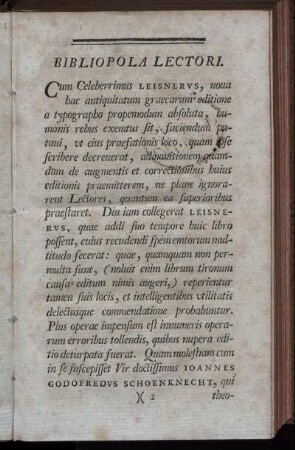 BIBLIOPOLA LECTORI.
Cum Celeberrimus LEISNERVS, noua
hac antiquitatum graecarum editione
a typographo propemodum absoluta, hu-
manis rebus exemtus sit, faciendum pu-
taui, vt eius praefationis loco, quam ipse
scribere decreuerat, admonitionem quan-
dam de augmentis et correctionibus huius
editionis praemitterem, ne plane ignora-
rent Lectores, quantum ea superioribus
praestaret. Diu iam collegerat LEISNE-
RVS, quae addi suo tempore huic libro
possent, cuius recudendi spem emtorum mul-
titudo fecerat: quae, quamquam non per-
multa sunt, (noluit enim librum tironum
causa editum nimis augeri,) reperientur
tamen suis locis, et intelligentibus vtilitatis
delectusque commendatione probabuntur.
Plus operae impensum est innumeris opera-
rum erroribus tollendis, quibus nupera edi-
tio deturpata fuerat. Quam molestiam cum
in se suscepisset Vir doctissimus IOANNES
GODOFREDVS SCHOENKNECHT, qui
)( 2 theo-